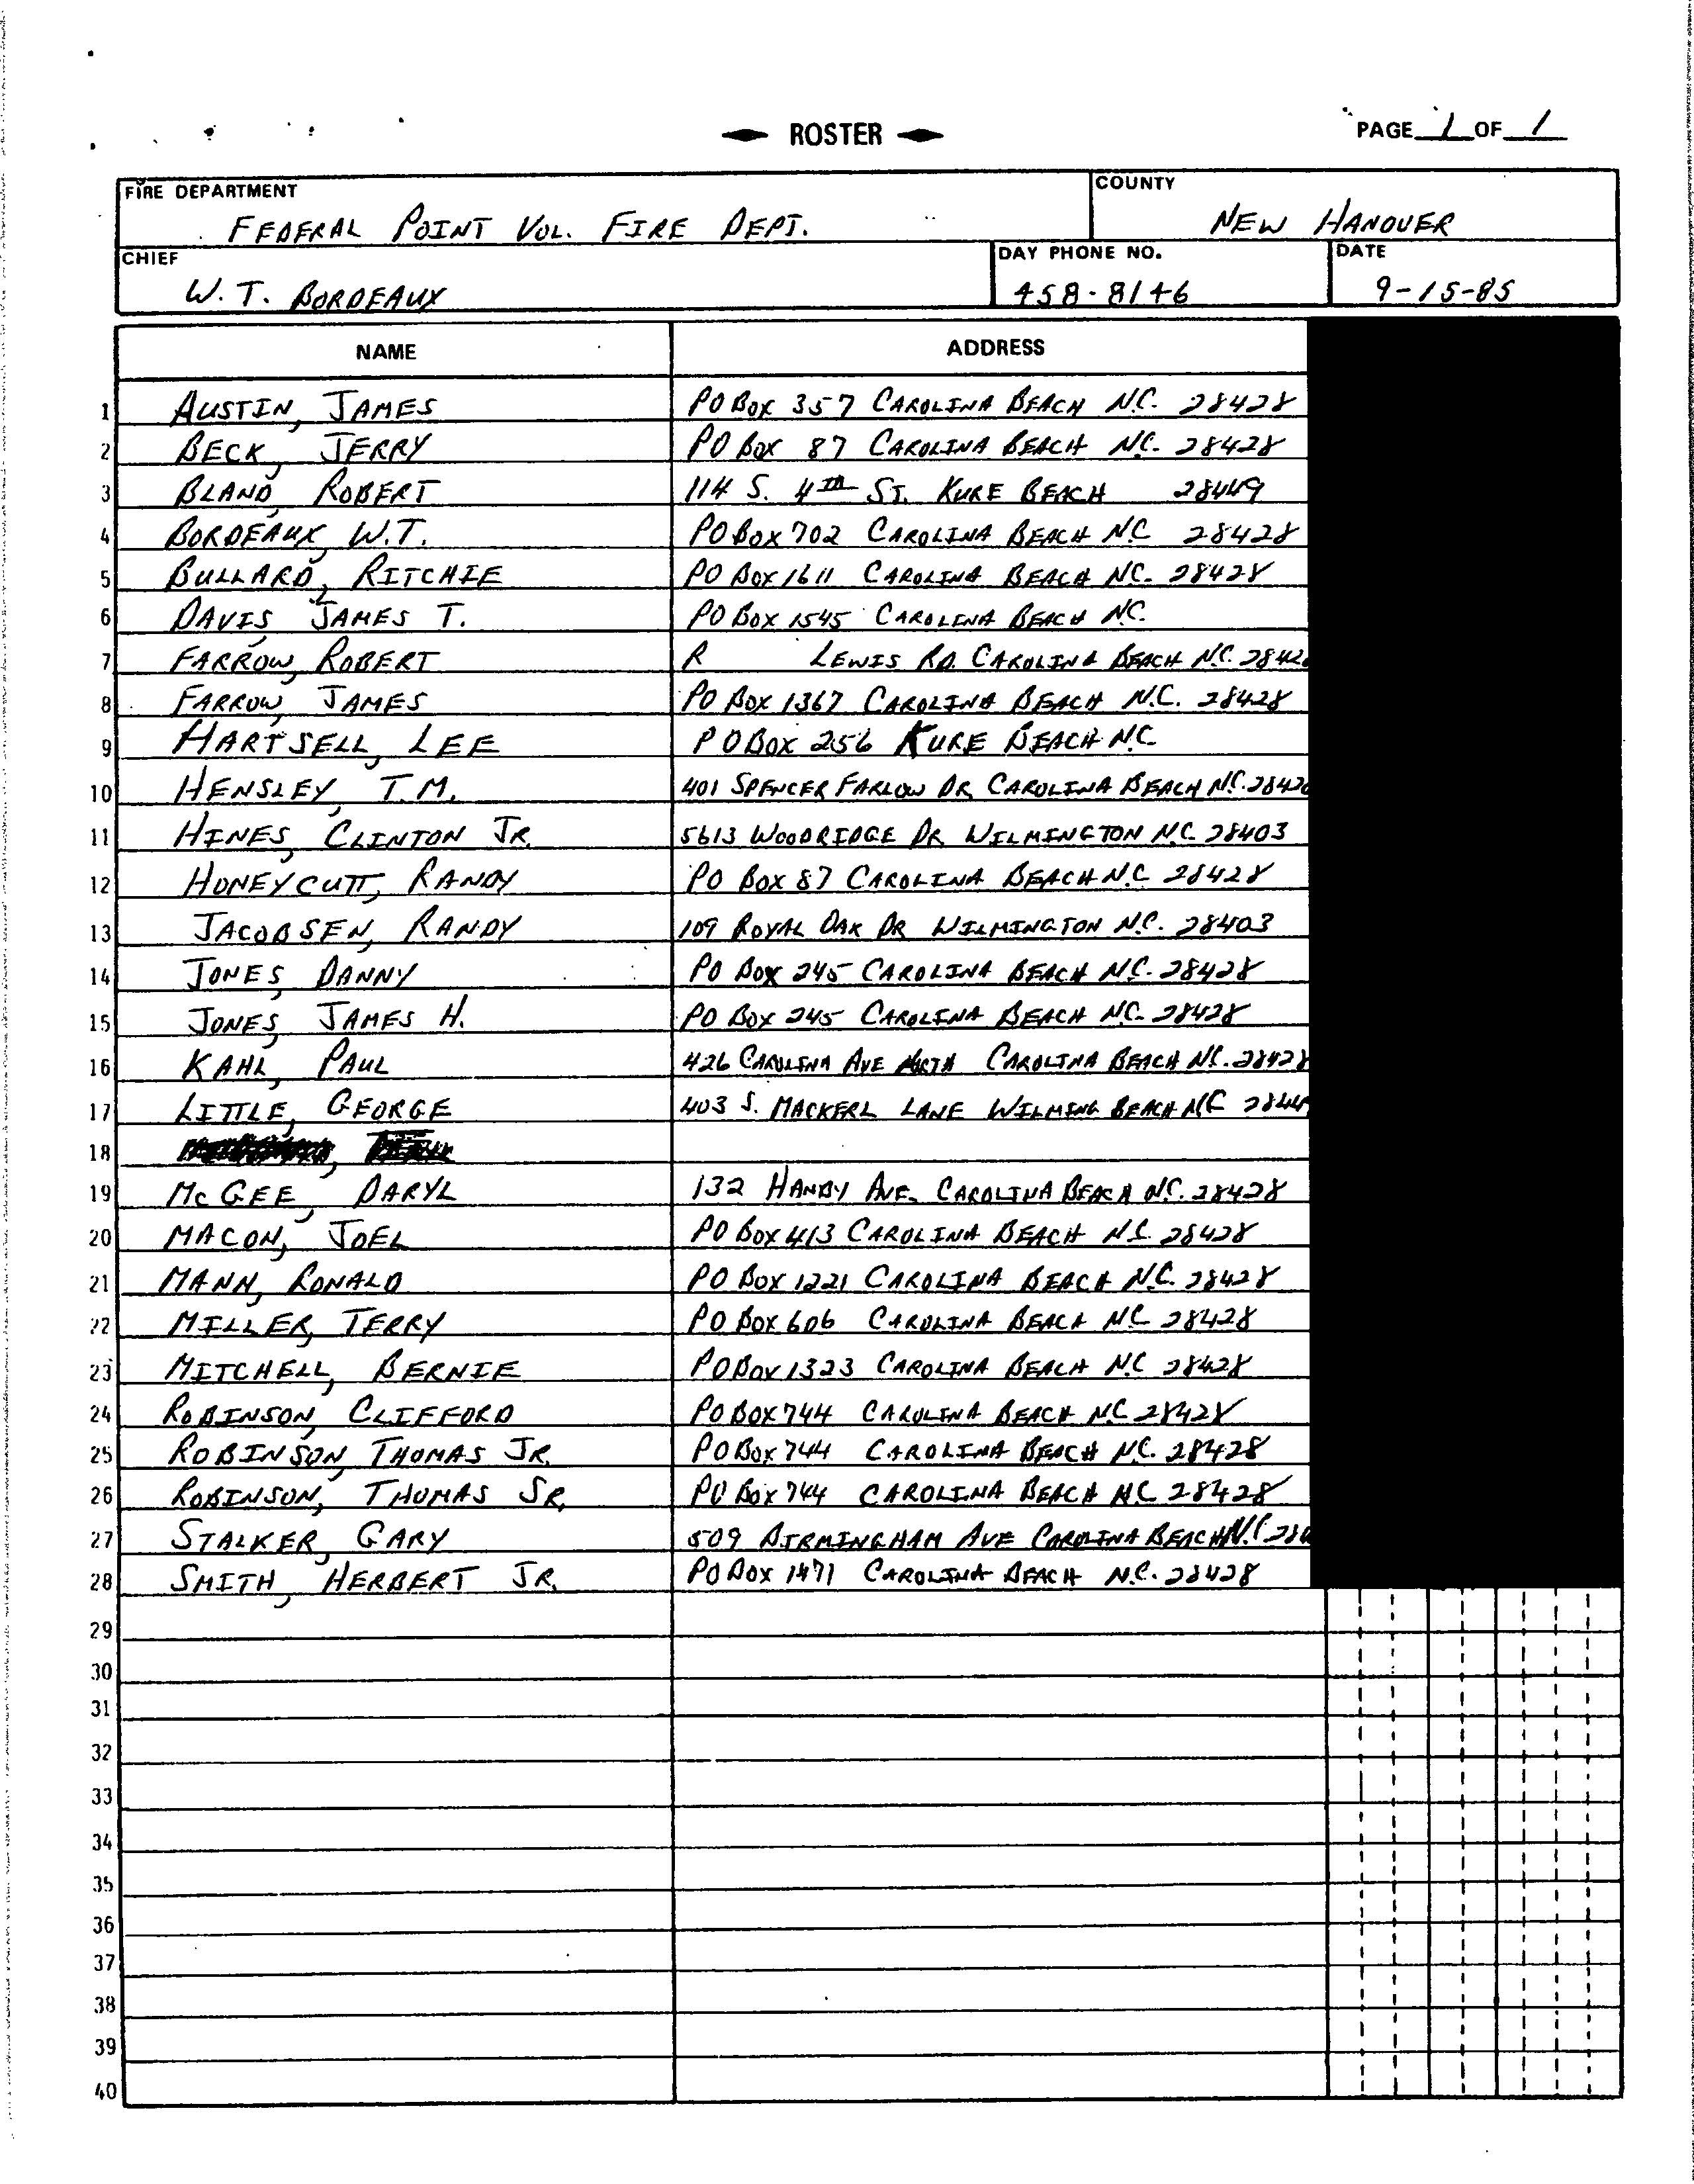 ROSTER
PAGE 1 OF 1
FIRE DEPARTMENT
FEDERAL POINT VOL. FIRE DEPT.
COUNTY
NEW HANOVER
CHIEF
W.T. BORDEAUX
DAY PHONE NO.
458-8146
DATE
9-15-85
NAME ADDRESS
1 AUSTIN, JAMES PO BOX 357 CAROLINA BEACH N.C. 28428
2 BECK, JERRY PO BOX 87 CAROLINA BEACH N.C. 28428
3 BLAND, ROBERT 114 S. 4TH ST. KURE BEACH 28449
4 BORDEAUX, W.T. PO BOX 702 CAROLINA BEACH N.C 28428
5 BULLARD, RITCHIE PO BOX 1611 CAROLINA BEACH NC. 28428
6 DAVIS, JAMES T. PO BOX 1545 CAROLINA BEACH N.C.
7 FARROW, ROBERT R LEWIS RD. CAROLINA BEACH N.C. 2842
8 FARROW, JAMES PO BOX 1367 CAROLINA BEACH N.C. 28428
9 HARTSELL, LEE PO BOX 256 KURE BEACH N.C
10 HENSLEY, T.M. 401 SPENCER FARLOW DR CAROLINA BEACH N.C. 2842
11 HINES, CLINTON JR. 5613 WOODRIDGE DR WILMINGTON N.C. 28403
12 HONEYCUTT, RANDY PO BOX 87 CAROLINA BEACH N.C 28428
13 JACOBSEN, RANDY 109 ROYAL OAK DR WILMINGTON N.C. 28403
14 JONES, DANNY PO BOX 245 CAROLINA BEACH N.C. 28428
15 JONES, JAMES H. PO BOX 245 CAROLINA BEACH N.C. 28428
16 KAHL, PAUL 426 CAROLINA AVE NORTH CAROLINA BEACH N.C. 28428
17 LITTLE, GEORGE 403 S. MACKERL LANE WILMING BEACH N.C 2844
18
19 McGEE, DARYL 132 HANBY AVE. CAROLINA BEACH N.C. 28428
20 MACON, JOEL PO BOX 413 CAROLINA BEACH N.C. 28428
21 MANN, RONALD PO BOX 1221 CAROLINA BEACH N.C. 28428
22 MILLER, TERRY PO BOX 606 CAROLINA BEACH NC 28428
23 MITCHELL, BERNIE PO BOX 1323 CAROLINA BEACH N.C 28428
24 ROBINSON, CLIFFORD PO BOX 744 CAROLINA BEACH N.C 28428
25 ROBINSON, THOMAS JR. PO BOX 744 CAROLINA BEACH N.C. 28428
26 ROBINSON, THOMAS SR. PO BOX 744 CAROLINA BEACH N.C 28428
27 STALKER, GARY 509 BIRMINGHAM AVE CAROLINA BEACH N.C. 284
28 SMITH, HERBERT JR. PO BOX 1471 CAROLINA BEACH N.C. 28428
29
30
31
32
33
34
35
36
37
38
39
40